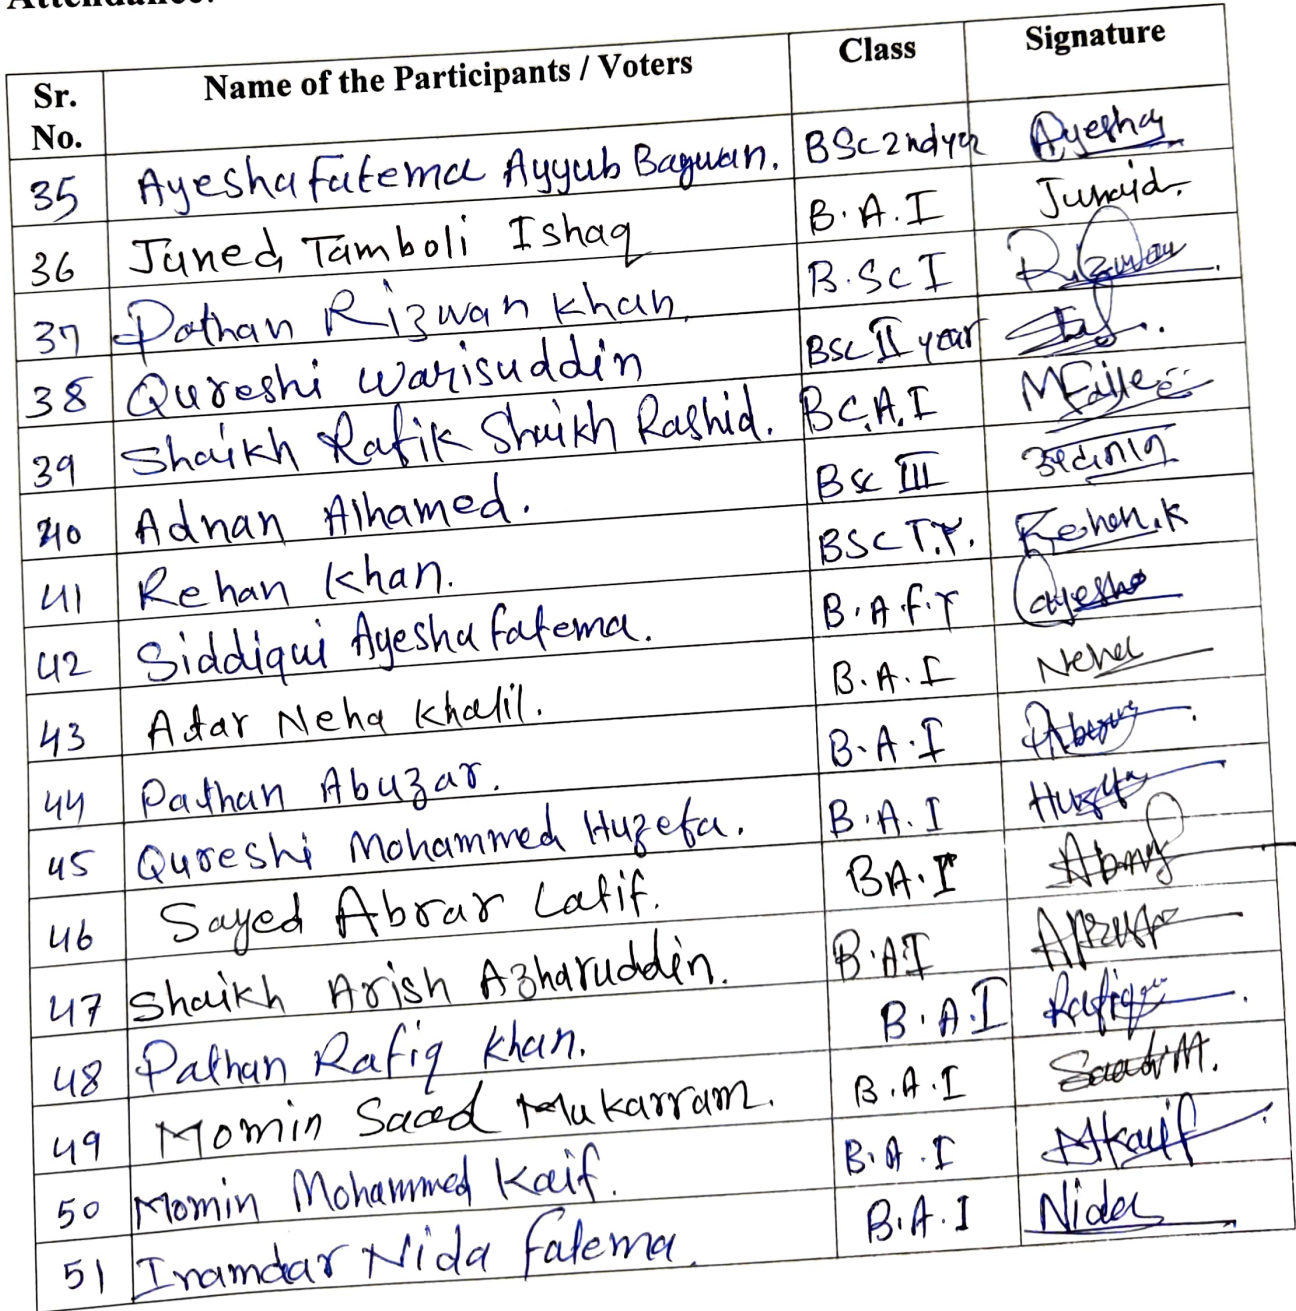 Attendance:
Sr. No. Name of the Participants / Voters Class Signature
35 Ayesha Fatema Ayyub Bagwan. BSc 2nd year Ayesha
36 Juned Tamboli Ishaq B.A.I Junaid.
37 Pathan Rizwan Khan. B.Sc I Rizwan
38 Qureshi Warisuddin BSc II year
39 Shaikh Rafik Shaikh Rashid. BC.A.I
40 Adnan Alhamed. BSc III عدنان
41 Rehan Khan. BSC T.Y. Rehan.K
42 Siddiqui Ayesha Fatema. B.A F.Y Ayesha
43 Atar Neha Khalil. B.A.I Neha
44 Pathan Abuzar. B.A.I
45 Qureshi Mohammed Huzefa. B.A.I
46 Sayed Abrar Latif. BA.I
47 Shaikh Arish Azharuddin. B.AI
48 Pathan Rafiq Khan. B.A.I Rafiq
49 Momin Saad Mukarram. B.A.I Saad M.
50 Momin Mohammed Kaif. B.A.I MKaif
51 Inamdar Nida Fatema. B.A.I Nida